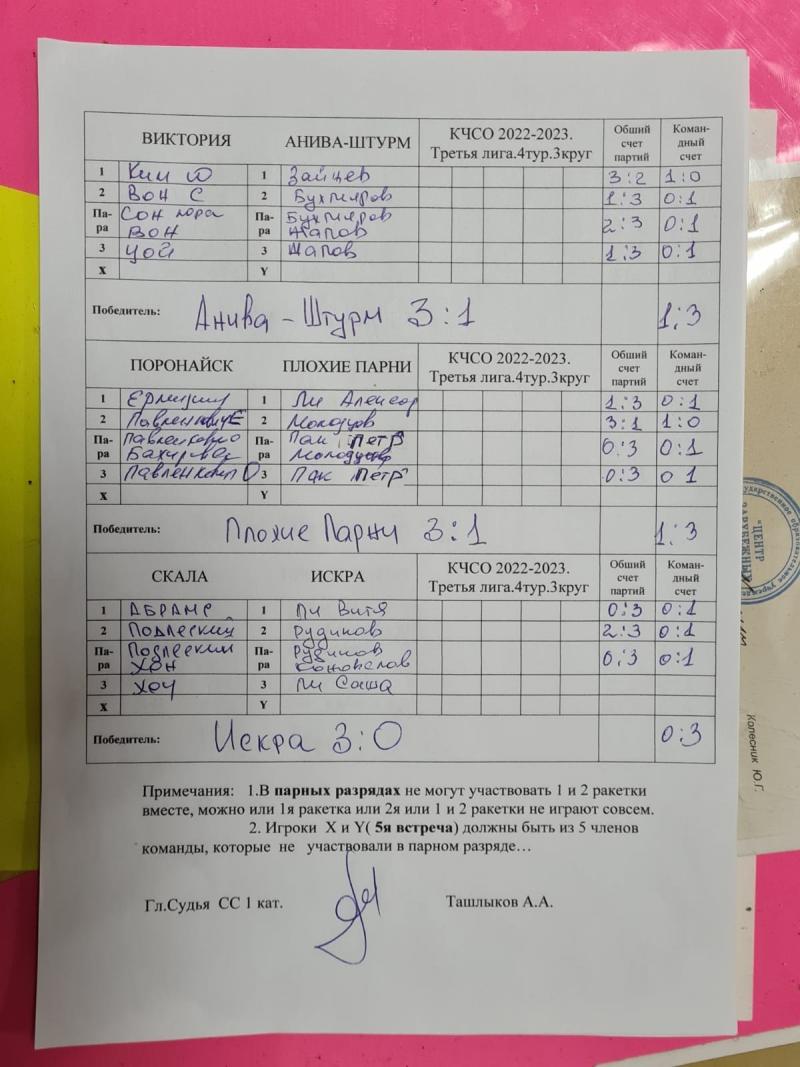 ВИКТОРИЯ АНИВА-ШТУРМ КЧСО 2022-2023. Третья лига.4тур.3круг Общий счет партий Коман-дный счет
1 Ким Ю 1 Зайцев 3:2 1:0
2 Вон С 2 Бухмияров 1:3 0:1
Па-ра Сон Вон Па-ра Бухмияров Шапов 2:3 0:1
3 Цой 3 Шапов 1:3 0:1
X Y
Победитель: Анива-Штурм 3:1 1:3
ПОРОНАЙСК ПЛОХИЕ ПАРНИ КЧСО 2022-2023. Третья лига.4тур.3круг Общий счет партий Коман-дный счет
1 1 Ли 1:3 0:1
2 2 Молодцов 3:1 1:0
Па-ра Па-ра Пак Петр 0:3 0:1
3 3 Пак Петр 0:3 0 1
X Y
Победитель: Плохие Парни 3:1 1:3
СКАЛА ИСКРА КЧСО 2022-2023. Третья лига.4тур.3круг Общий счет партий Коман-дный счет
1 1 Ли Витя 0:3 0:1
2 Подлеский 2 Рудиков 2:3 0:1
Па-ра Подлеский Хон Па-ра Рудиков 0:3 0:1
3 Хоу 3 Ли Саша
X Y
Победитель: Искра 3:0 0:3
Примечания: 1.В парных разрядах не могут участвовать 1 и 2 ракетки
вместе, можно или 1я ракетка или 2я или 1 и 2 ракетки не играют совсем.
2. Игроки X и Y( 5я встреча) должны быть из 5 членов
команды, которые не участвовали в парном разряде…
Гл.Судья СС 1 кат. Ташлыков А.А.
"ЦЕНТР
Колесник Ю.Г.